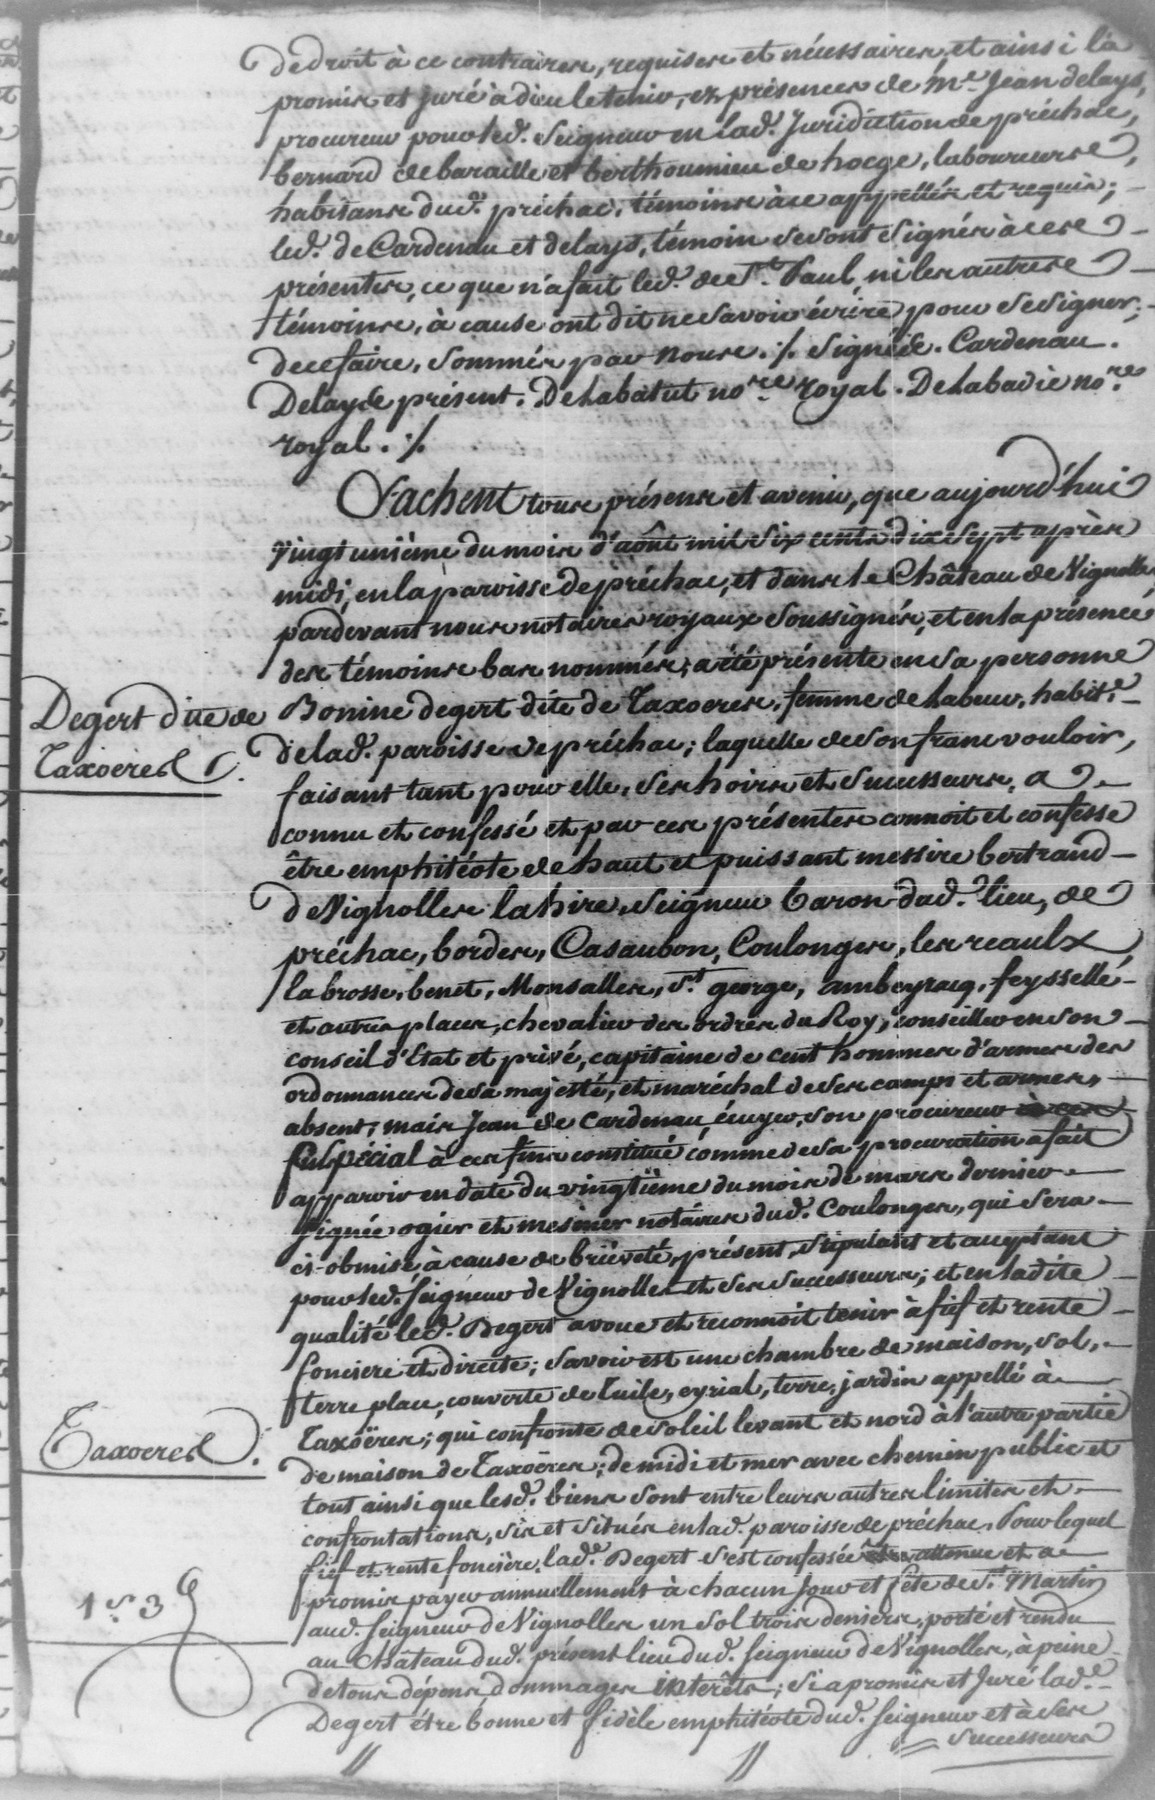 de droit à ce contraires, requises et nécessaires, et ainsi l'a
promis et juré à dieu le tenir, ez présences de Me. Jean delays,
procureur pour led. Seigneur en lad. Juridiction de préchac,
bernard de baraille et berthoumieu de hocge, laboureurs,
habitans dud. préchac, témoins à ce appellés et requis;
led. de Cardenau et delays, témoin se sont signés à ces
présentes, ce que n'a fait led. de St. Paul, ni les autres
témoins, à cause ont dit ne savoir écrire pour se signer;
de ce faire, sommés par nous ./. signés. Cardenau.
Delays présent. De Labatut nore. royal. De Labadie nore.
royal ./.
Sachent tous présens et avenir, que aujourd'hui
vingt unième du mois d'aôut mil six cents dix sept après
midi, en la paroisse de préchac, et dans le Château de Vignolle,
pardevant nous notaires royaux soussignés, et en la présence
des témoins bas nommés, a été présente en sa personne
Degert dite de
Bonine degert dite de Taxoeres, femme de Labeur, habite.
Taxoeres
de lad. paroisse de préchac; laquelle de son franc vouloir,
faisant tant pour elle, ses hoirs et successeurs, a
connu et confessé et par ces présentes connoit et confesse
être emphitéote de haut et puissant messire bertrand
de Vignolles lahire, Seigneur baron dud. lieu, de
préchac, bordes, Casaubon, Coulonges, les reaulx
labrosse, benet, Monsalles, St. george, ambeyracq, feyssellé
et autres places, chevalier des ordres du Roy, conseiller en son
conseil d'Etat et privé, capitaine de cent hommes d'armes des
ordonnances de sa majesté, et maréchal de ses camps et armes,
absent; mais Jean de Cardenau écuyer, son procureur
spécial à ces fins constitué comme de sa procuration a fait
apparoir en date du vingtième du mois de mars dernier
signée ogier et mesiner notaires dud. Coulonges, qui sera
ci-obmise à cause de briéveté, présent, stipulant et acceptant
pour led. seigneur de Vignolles et ses successeurs; et en ladite
qualité led. Degert avoue et reconnoit tenir à fief et rente
fonciere et directe; savoir est une chambre de maison, sol,
terre place, couverte de tuile, eyrial, terre, jardin appellé à
Taxoeres
Taxoëres; qui confronte de soleil levant et nord à l'autre partie
de maison de Taxoëres; de midi et mer avec chemin public et
tout ainsi que lesd. biens sont entre leurs autres limites et
confrontations, sis et situés en lad. paroisse de préchac. Pour lequel
fief et rente foncière, lade. Degert s'est confessée attenue et a
1 s. 3 d
promis payer annuellement à chacun jour et fête de St. Martin
aud. seigneur de Vignolles un sol trois deniers, porté et rendu
au château dud. présent lieu dud. seigneur de Vignolles, à peine
de tous dépens dommages intérêts; si a promis et Juré lade.
Degert être bonne et fidèle emphitéote dud. seigneur et à ses
successeurs